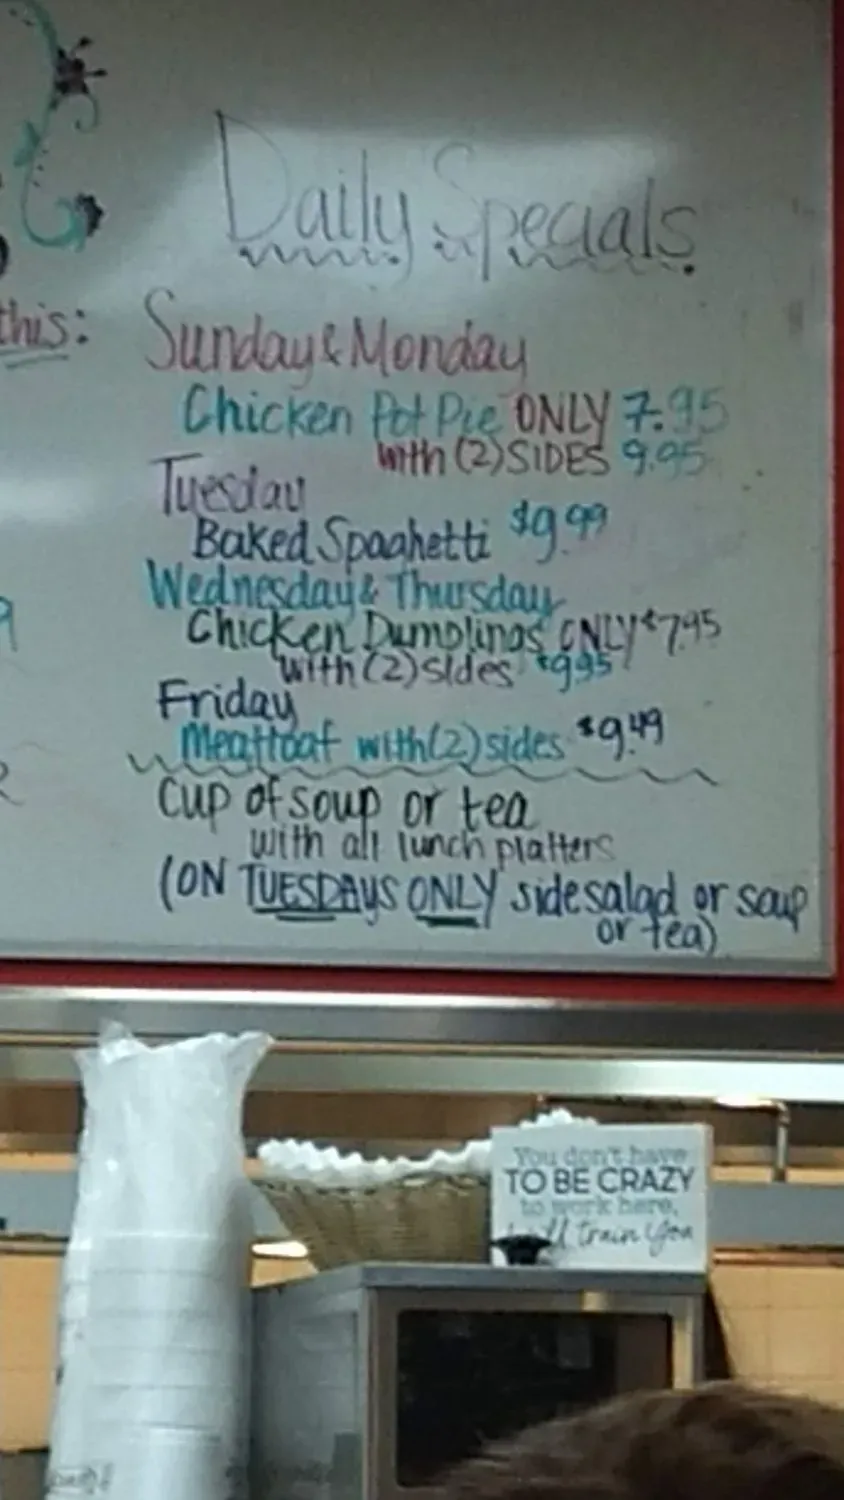 Daily Specials
this:
Sunday & Monday
Chicken Pot Pie ONLY 7.95
with (2) SIDES 9.95
Tuesday
Baked Spaghetti $9.99
Wednesday & Thursday
Chicken Dumplings ONLY $7.95
with (2) sides $9.95
Friday
Meatloaf with (2) sides $9.49
Cup of soup or tea
with all lunch platters
(ON TUESDAYS ONLY side salad or soup
or tea)
You don't have
TO BE CRAZY
to work here,
train you